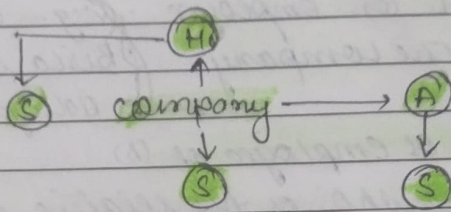 H
S company A
S S